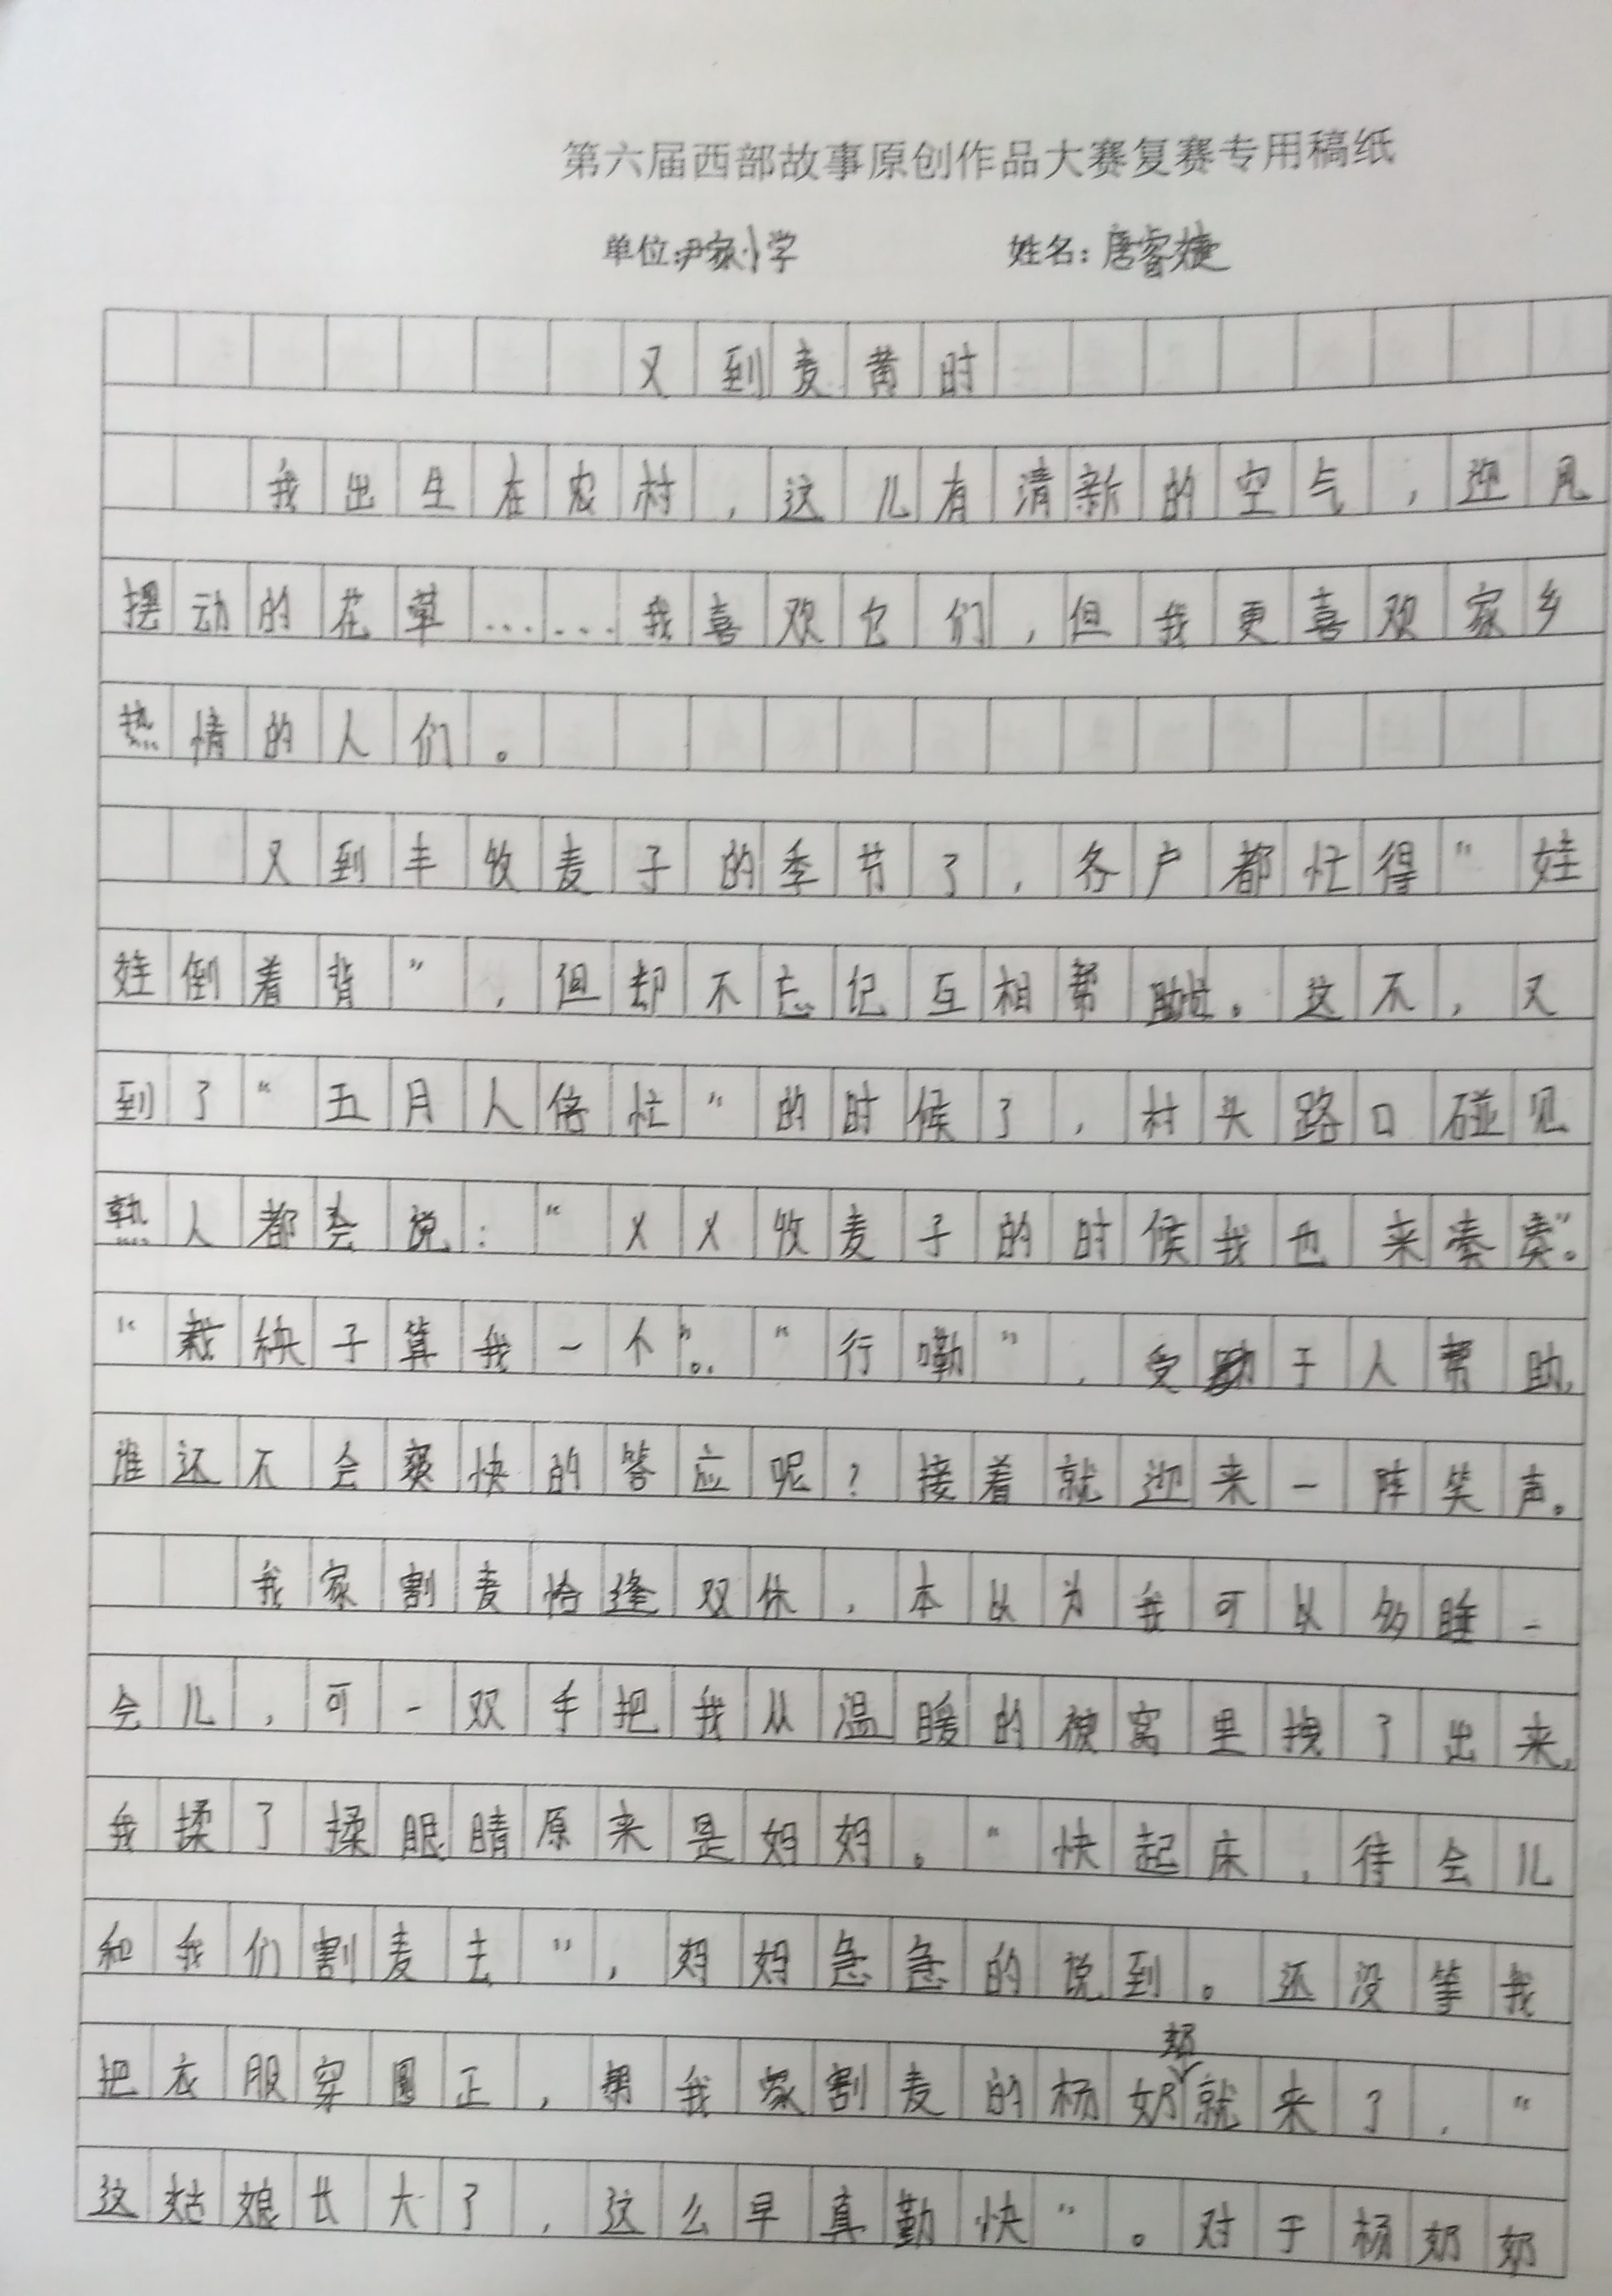 第六届西部故事原创作品大赛复赛专用稿纸
单位:尹家小学 姓名:唐睿婕
又到麦黄时
我出生在农村，这儿有清新的空气，迎风
摆动的花草……我喜欢它们，但我更喜欢家乡
热情的人们。
又到丰收麦子的季节了，各户都忙得“娃
娃倒着背”，但却不忘记互相帮助。这不，又
到了“五月人倍忙”的时候了，村头路口碰见
熟人都会说：“乂乂收麦子的时候我也来凑凑”。
“栽秧子算我一个”。“行嘞”，受于人帮助，
谁还不会爽快的答应呢？接着就迎来一阵笑声。
我家割麦恰逢双休，本以为我可以多睡一
会儿，可一双手把我从温暖的被窝里拽了出来，
我揉了揉眼睛原来是妈妈。“快起床，待会儿
和我们割麦去”，妈妈急急的说到。还没等我
把衣服穿周正，帮我家割麦的杨奶奶就来了，“
这姑娘长大了，这么早真勤快”。对于杨奶奶